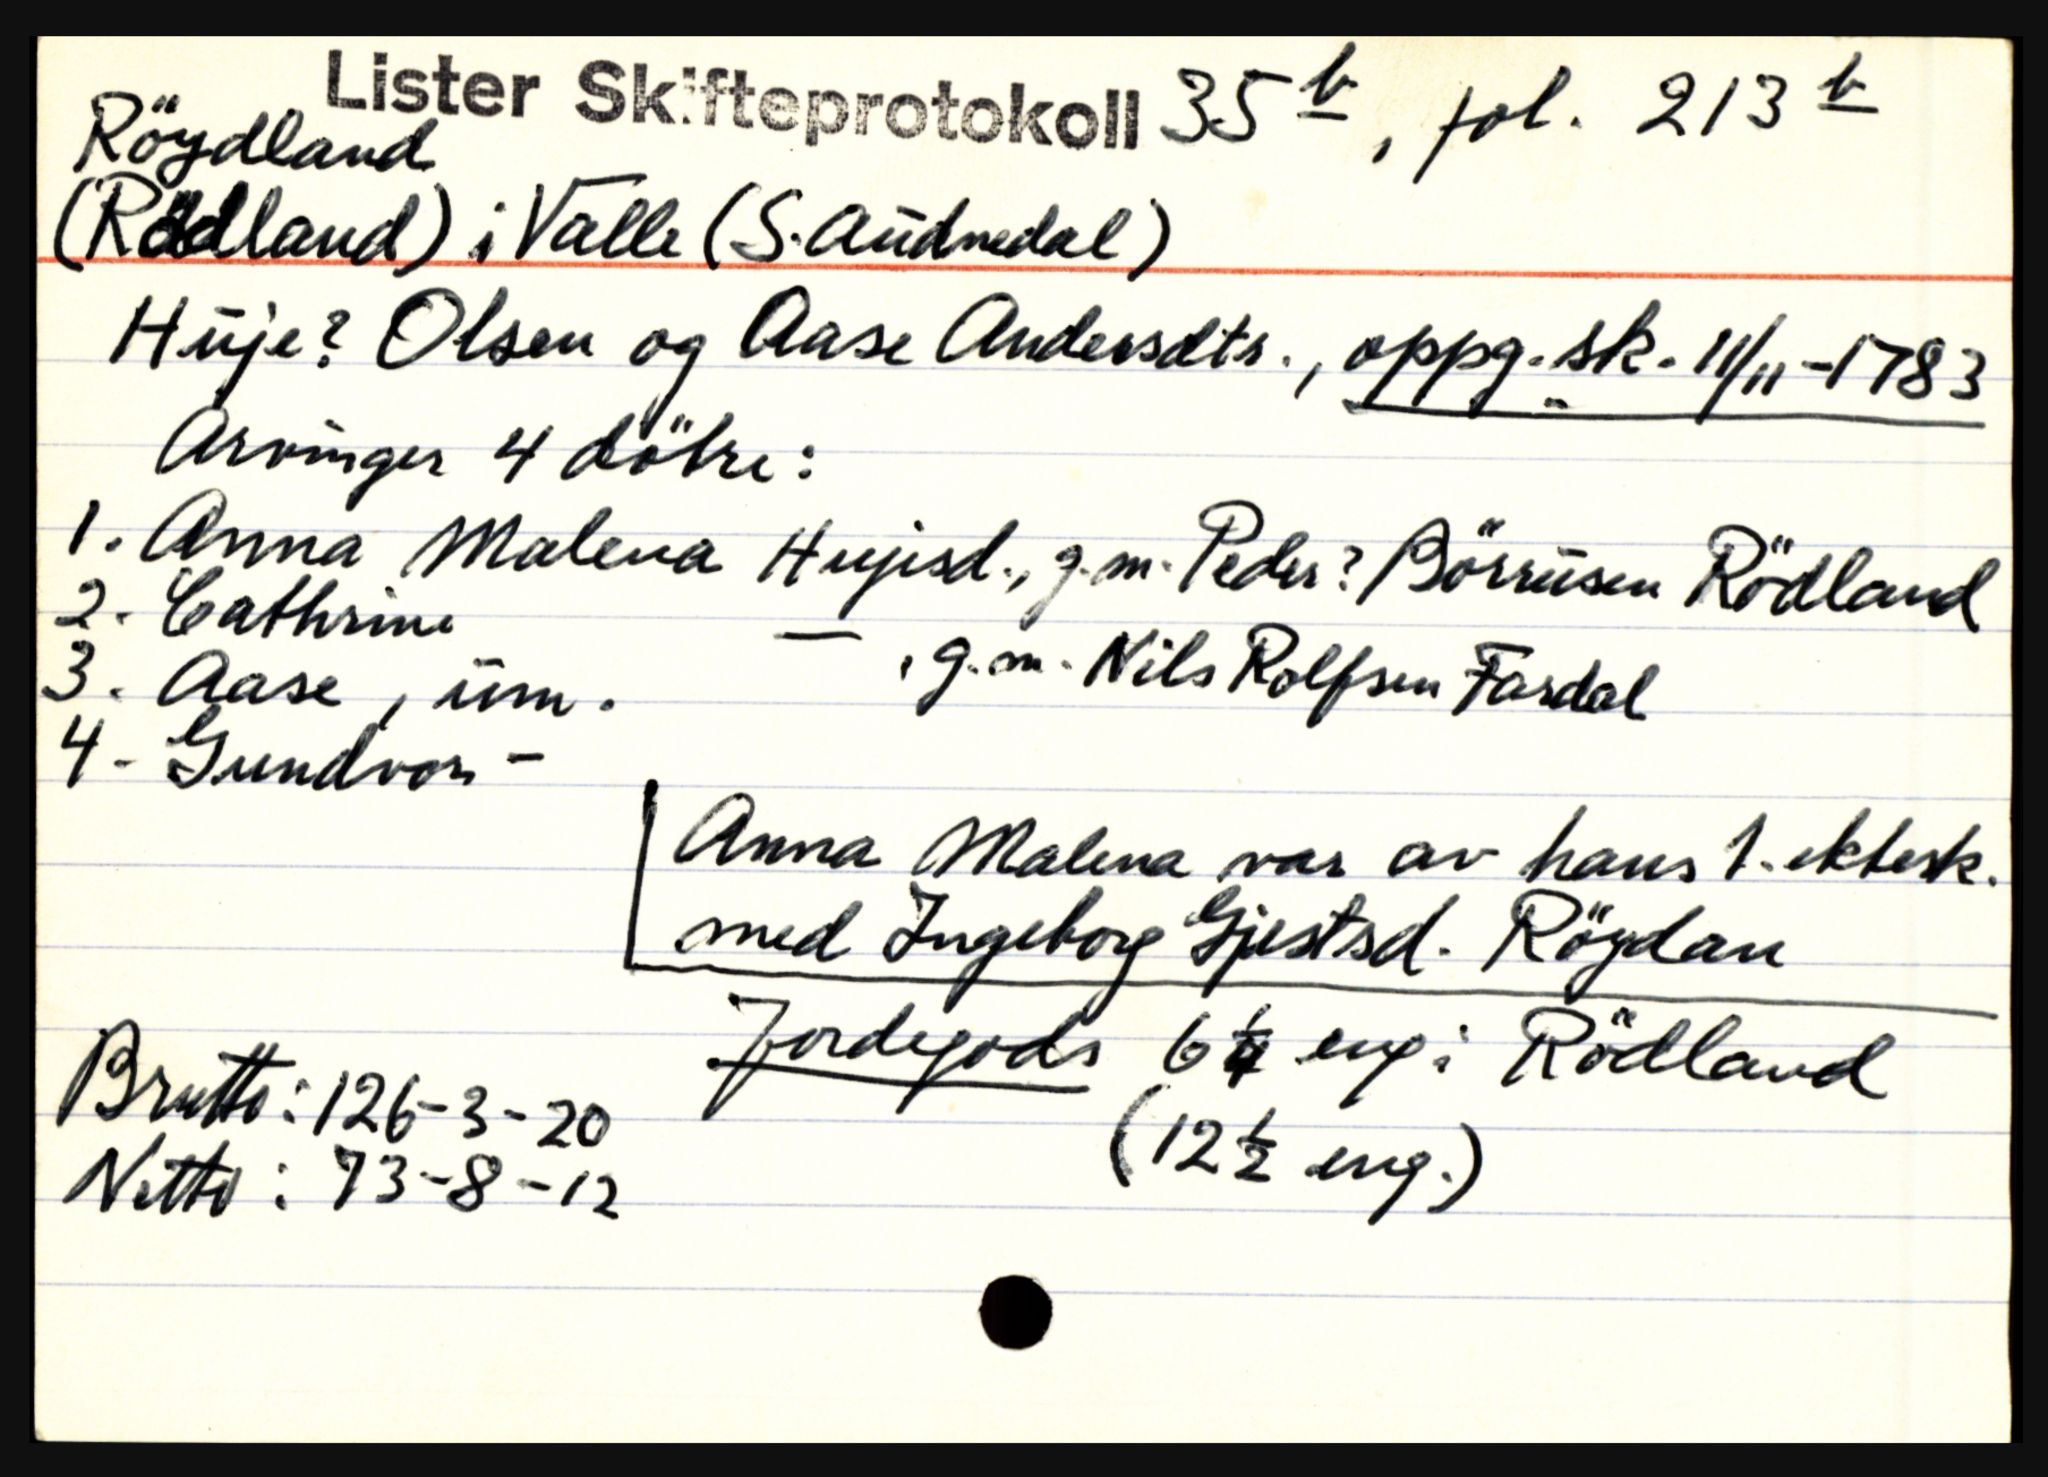 Lister Skifteprotokoll 35 b, fol. 213 b
Röydland
(Rödland) i Valle (S. Audnedal)
Huje? Olsen og Aase Andersdtr., oppg. sk. 11/11-1783
Arvinger 4 döbre:
1. Anna Malena Hujisd., g.m. Peder? Börrusen Rödland
2. Cathrine — , g.m. Nils Rolfsen Fardal
3. Aase, um.
4 - Gundvor -
Anna Malena var av hans 1. ektesk.
med Ingeborg Gjestsd. Röydan
Jordegods 6 1/4 eng i Rödland
(12 1/2 eng.)
Brutto: 126-3-20
Netto: 73-8-12